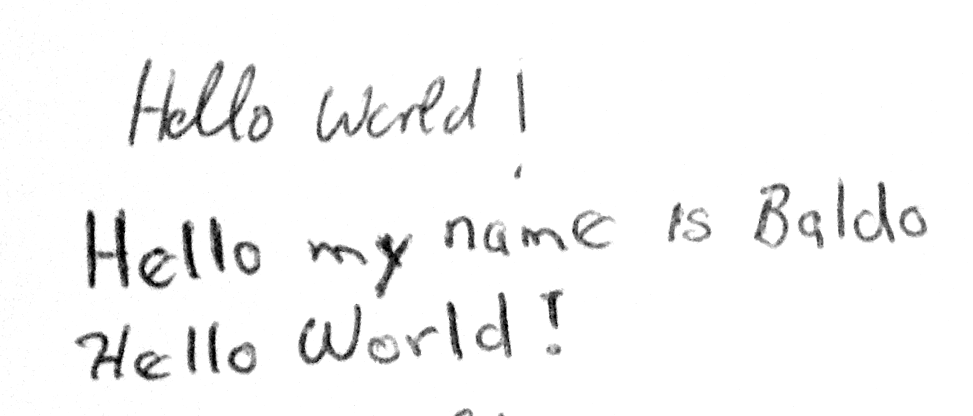 Hello World!
Hello my name is Baldo
Hello World!